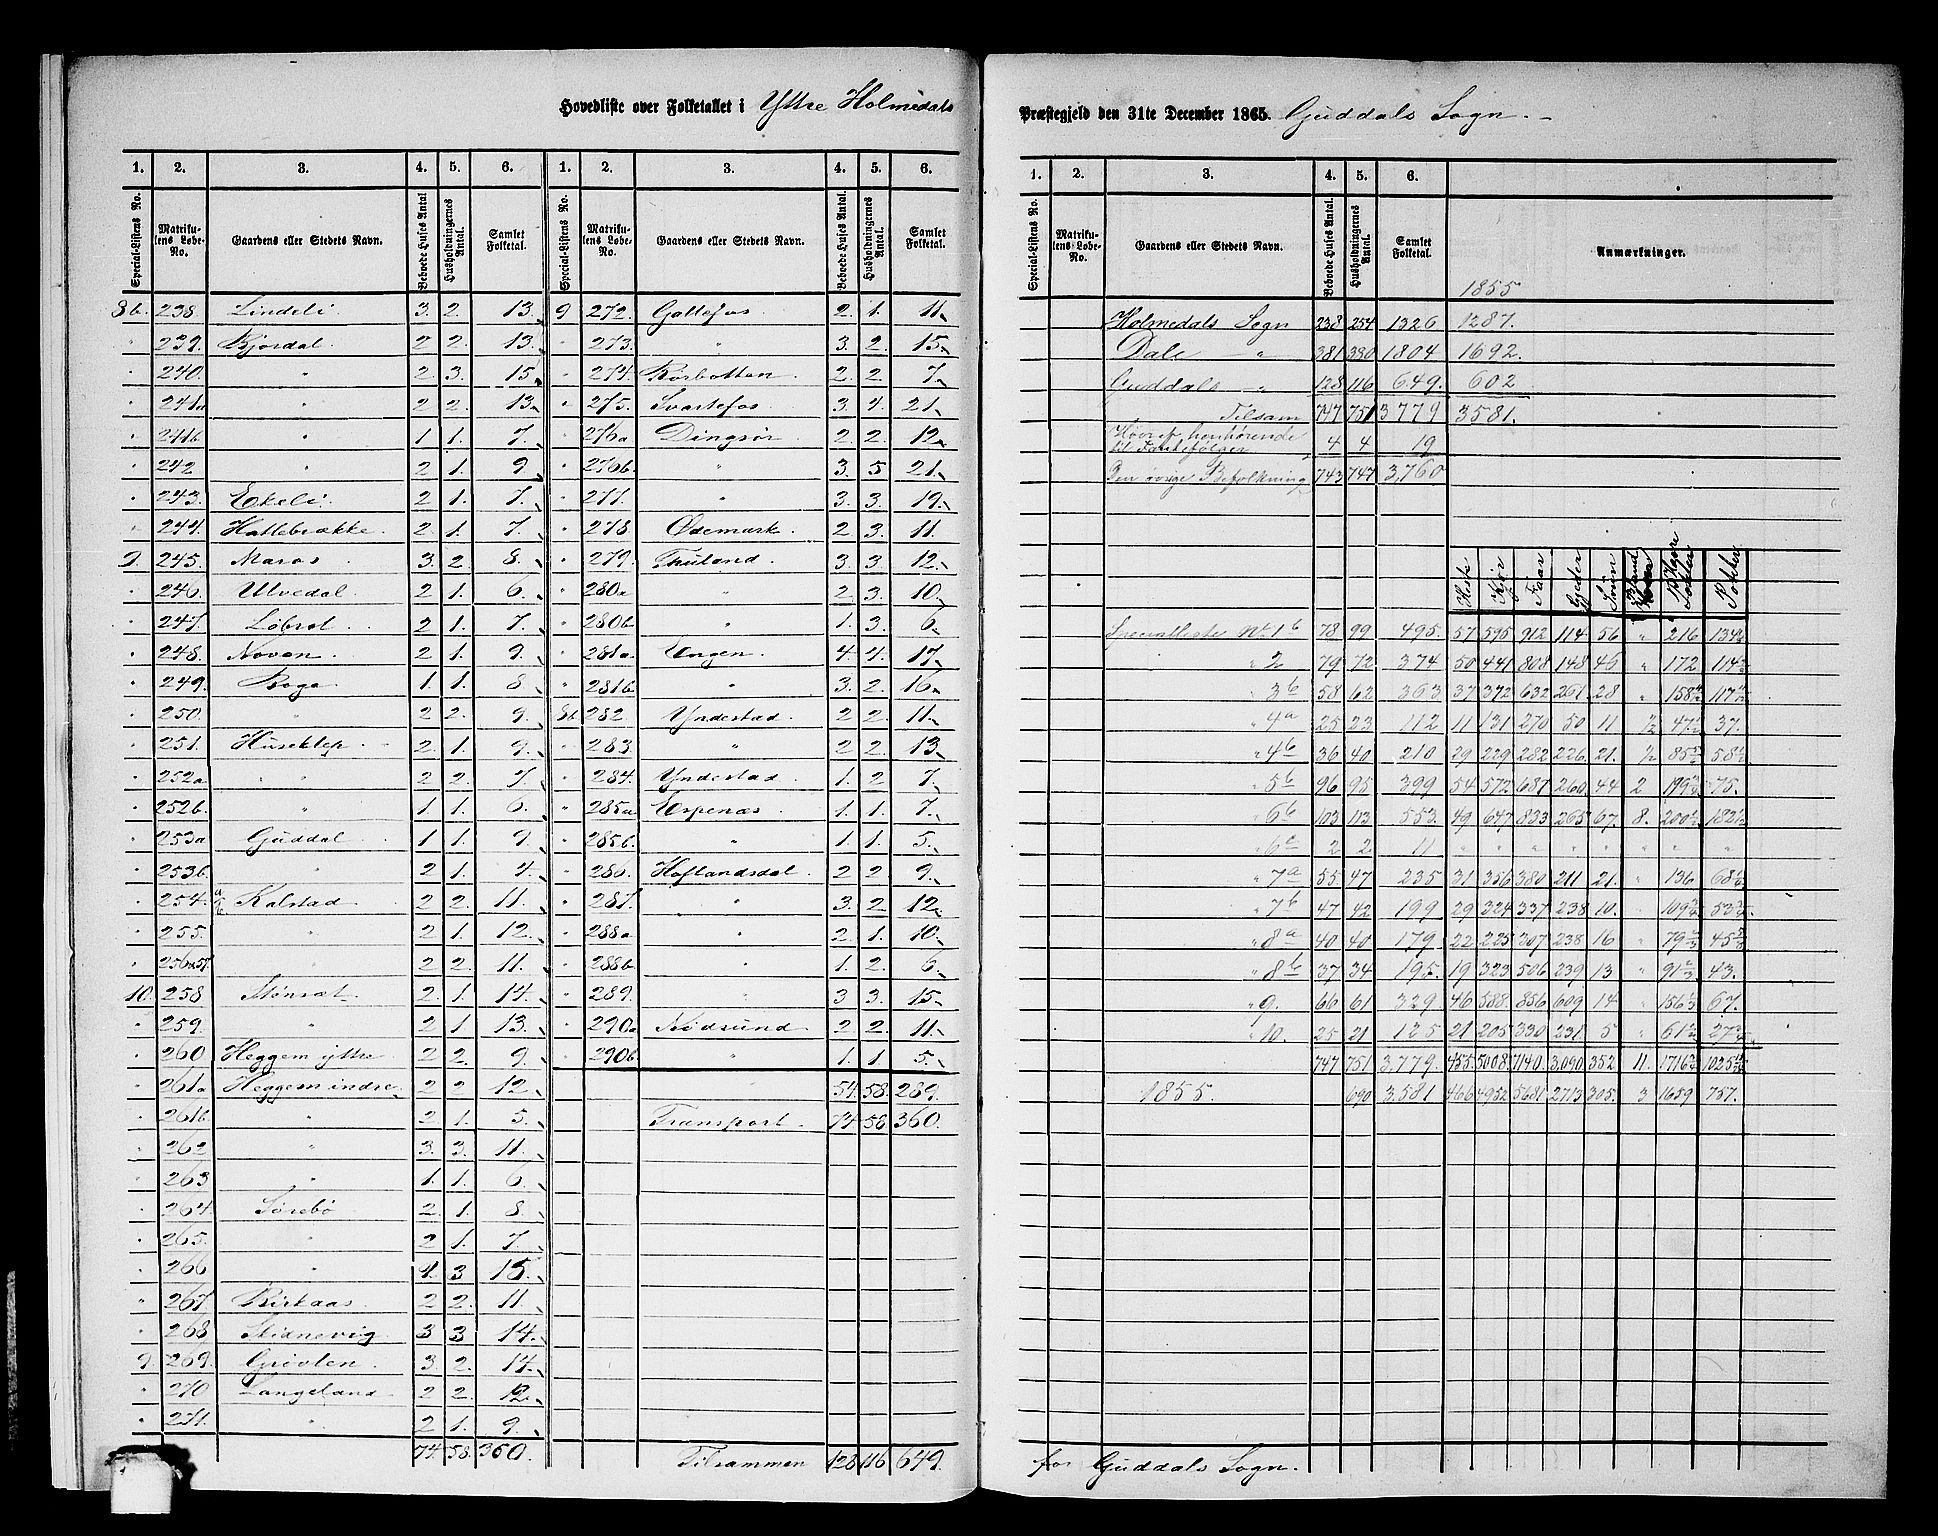 Hovedliste over Folketallet i Yttre Holmedals
1. 2. 3. 4. 5. 6. 1. 2. 3. 4. 5. 6.
Special-Listens No. Matrikulens Løbe-No. Gaardens eller Stedets Navn. Beboede Huses Antal Husholdningernes Antal. Samlet Folketal. Special-Listens No. Matrikulens Løbe-No. Gaardens eller Stedets Navn. Beboede Huses Antal. Husholdningernes Antal. Samlet Folketal.
8b. 238. Lindeli. 3. 2. 13.
" 239. Kjordal. 2 2. 13.
" 240. " 2. 3. 15.
" 241a " 2 2. 13.
" 241b " 1 1. 7.
" 242 " 2 1. 9.
" 243. Ekeli. 2 1. 7.
" 244. Hattebrække. 2 1. 7.
9. 245. Maros 3. 2 8.
" 246. Ulvedal. 2 1. 6.
" 247. Løbrot. 2 1. 7.
" 248. Noven. 2 1. 9.
" 249. Boge. 1. 1. 8.
" 250. " 2 2. 9.
" 251. Huseklep 2. 1. 9.
" 252a " 2 2. 7.
" 252b. " 1. 1. 6.
" 253a Guddal. 1 1. 9.
" 253b. " 2 1. 4.
" 254. Kalstad. 2 2. 11.
" 255. " 2 1. 12.
" 256&57. " 2 2. 11.
10. 258 Stønsæt. 2. 1. 14.
" 259. " 2 1. 13.
" 260 Heggem yttre. 2 2. 9.
" 261a Heggem indre. 2 2. 12.
" 261b. " 2. 1. 5.
" 262 " 3. 3. 11.
" 263 " 1. 1. 6.
" 264. Sørebø 2. 1. 8.
" 265. " 2 1. 7.
" 266 " 4. 3 15.
" 267 Birkaas. 2 2. 11.
" 268 Skianevig 3 3 14.
9. 269. Grøvlen. 3. 2. 14.
" 270 Langeland 2 2. 12.
" 271. " 2 1. 9.
74. 58. 360.
9 272. Gattefos 2. 1. 11.
" 273. " 3. 2. 15.
" 274. Rørbotten 2. 2. 7.
" 275. Svartefos 3. 4. 21.
" 276a Dingsør. 2. 2. 12.
" 276b. " 3. 5 21.
" 277. " 3. 3. 19.
" 278. Ødemark. 2 3. 11.
" 279. Thuland. 3. 3. 12.
" 280a " 2 3. 10.
" 280b " 1. 3. 6.
" 281a Engen. 4. 4. 17.
" 281b. " 3. 2. 16.
8b. 282. Yndestad. 2 2. 11.
" 283. " 2 2. 13.
" 284. Yndestad. 1. 2 7.
" 285a Espenæs. 1. 1. 7.
" 285b. " 1. 1. 5.
" 286. Hoflandsdal. 2 2 9.
" 287. " 3. 2 12.
" 288a " 2. 1. 10.
" 288b " 1. 2. 6.
" 289. " 3 3. 15.
" 290a Nødsund. 2 2. 11.
" 290b " 1. 1 5.
54. 58. 289.
Transport. 74. 58 360.
Tilsammen 128 116 649.
Præstegjeld den 31te December 1865. Guddals Sogn.
1. 2. 3. 4. 5. 6.
Special-Listens No. Matrikulens Løbe-No. Gaardens eller Stedets Navn. Beboede Huses Antal. Husholdningernes Antal. Samlet Folketal. Anmærkninger.
1855
Holmedals Sogn 238 254 1326 1287.
Dale " 381 330 1804 1692.
Guddals " 128 116 649. 602
Tilsam 747 751 3779 3581.
Heraf henhørende til Fantefølger 4 4 19
Den øvrige Befolkning 743 747 3,760
Heste Kjør Faar Gjeder Sviin
Specialliste No 1b 78 99 495. 57 595 912 114 56 " 216 134½
" 2 79 72 374 50 441 808 148 46 " 172 114
" 3b 58 62 363 37 372 632 261. 28 " 158 117
" 4a 25 23 112 11 131 270 50 11 ½ 47 37.
" 4b 36 40 210 29 229 282 226 21. ½ 85 58
" 5b 96 95 399 54 572 687 260. 44 2 199 75.
" 6b 103 113 553. 49 647 833 265 67. 8. 200½ 182½
" 6c 2 2 11 " " " " " " " "
" 7a 55 47 235 31 356 380 211 21. " 136 68
" 7b 47 42 199 29 324 337 238 10. " 109 53
" 8a 40 40 179 22 225 307 238 16 " 79 45
" 8b 37 34 195. 19 323 506 239 13 " 91 43.
" 9. 66 61 329 46 588 856 609 14 " 156 67.
" 10. 25 21 125 21 205 330 231. 5 " 61 27
747 751 3,779. 455 5008. 7140. 3,090 352 11. 1716 1025
1855. 690 3,581 466 4952 5681 2713 305. 3 1659 757.
for Guddals Sogn.